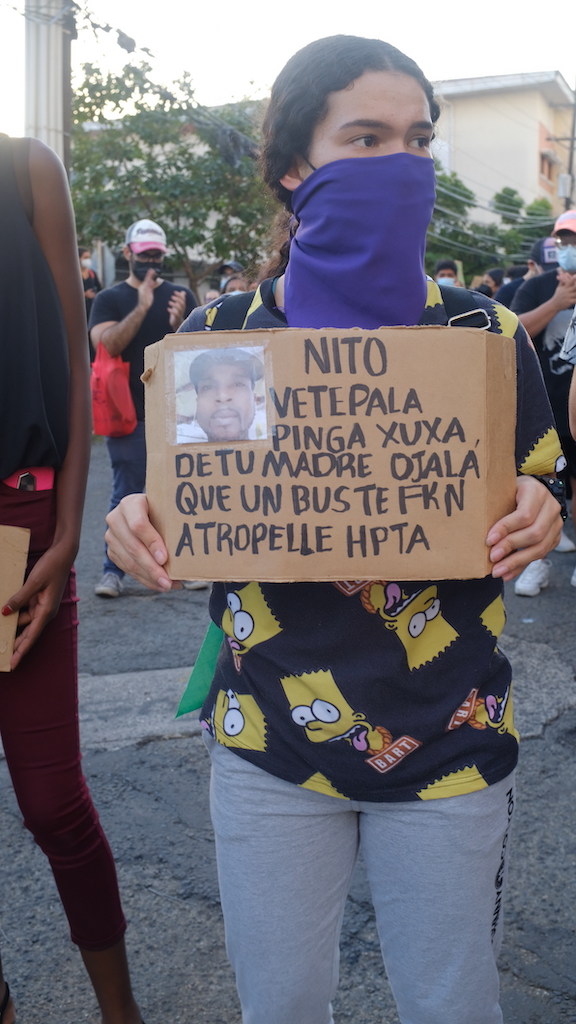 NITO
VETE PALA
PINGA XUXA,
DE TU MADRE OJALA
QUE UN BUS TE FKN
ATROPELLE HPTA
BART